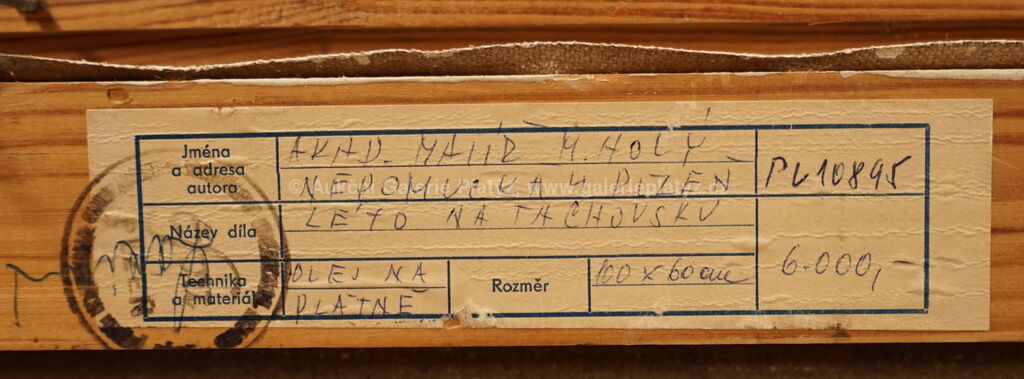 Jména
a adresa
autora
AKAD. MALÍŘ M. HOLÝ
NEPOMUCKÁ 4 PLZEŇ
PL 10895
Název díla
LÉTO NA TACHOVSKU
Technika
a materiál
OLEJ NA
PLÁTNĚ
Rozměr
100 x 60 cm
6.000,-
© Aukční Galerie Platýz, www.galerieplatyz.cz